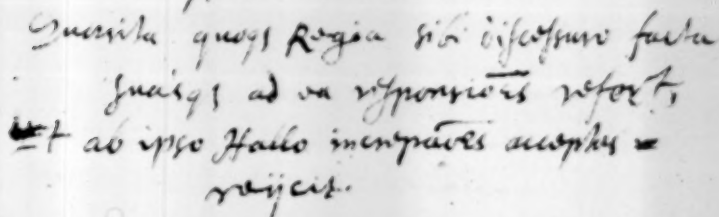 Quæsita quoqs Regia sibi discessuro facta
suasqs ad ea responsiões refert,
et ab ipso Hallo increpaões acceptas
reijcit.